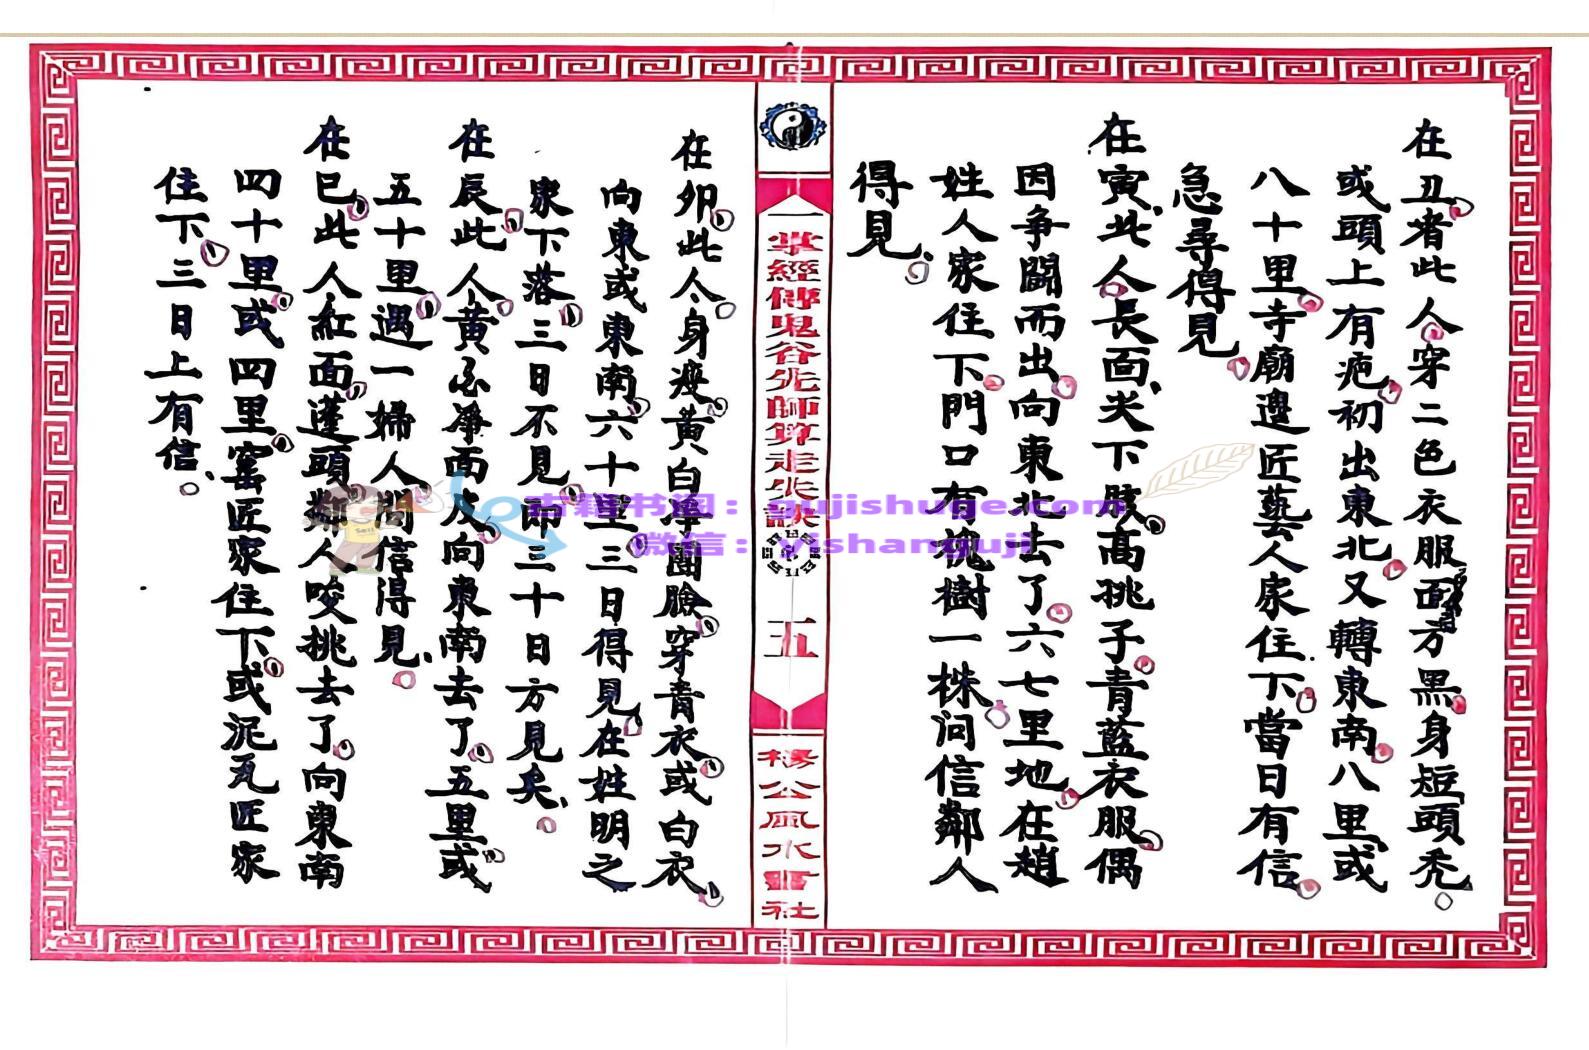 在丑者此人穿二色衣服面方黑身短頭禿
或頭上有疤初出東北又轉東南八里或
八十里寺廟邊匠藝人家住下當日有信
急尋得見
在寅此人長面尖下胲高挑子青藍衣服偶
因爭鬪而出向東北去了六七里地在趙
姓人家住下門口有槐樹一株问信鄰人
得見
一掌經傳鬼谷先師算走失訣
五
楊公風水書社
在卯此人身瘦黄白淨團臉穿青衣或白衣
向東或東南六十里三日得見在姓明之
家下落三日不見兩三十日方見矣
在辰此人黄而淨面大向東南去了五里或
五十里遇一婦人問信得見
在巳此人紅面蓬頭鄰人咬挑去了向東南
四十里或四里窰匠家住下或泥瓦匠家
住下三日上有信
古籍书阁:gujishuge.com
微信:yishanguji